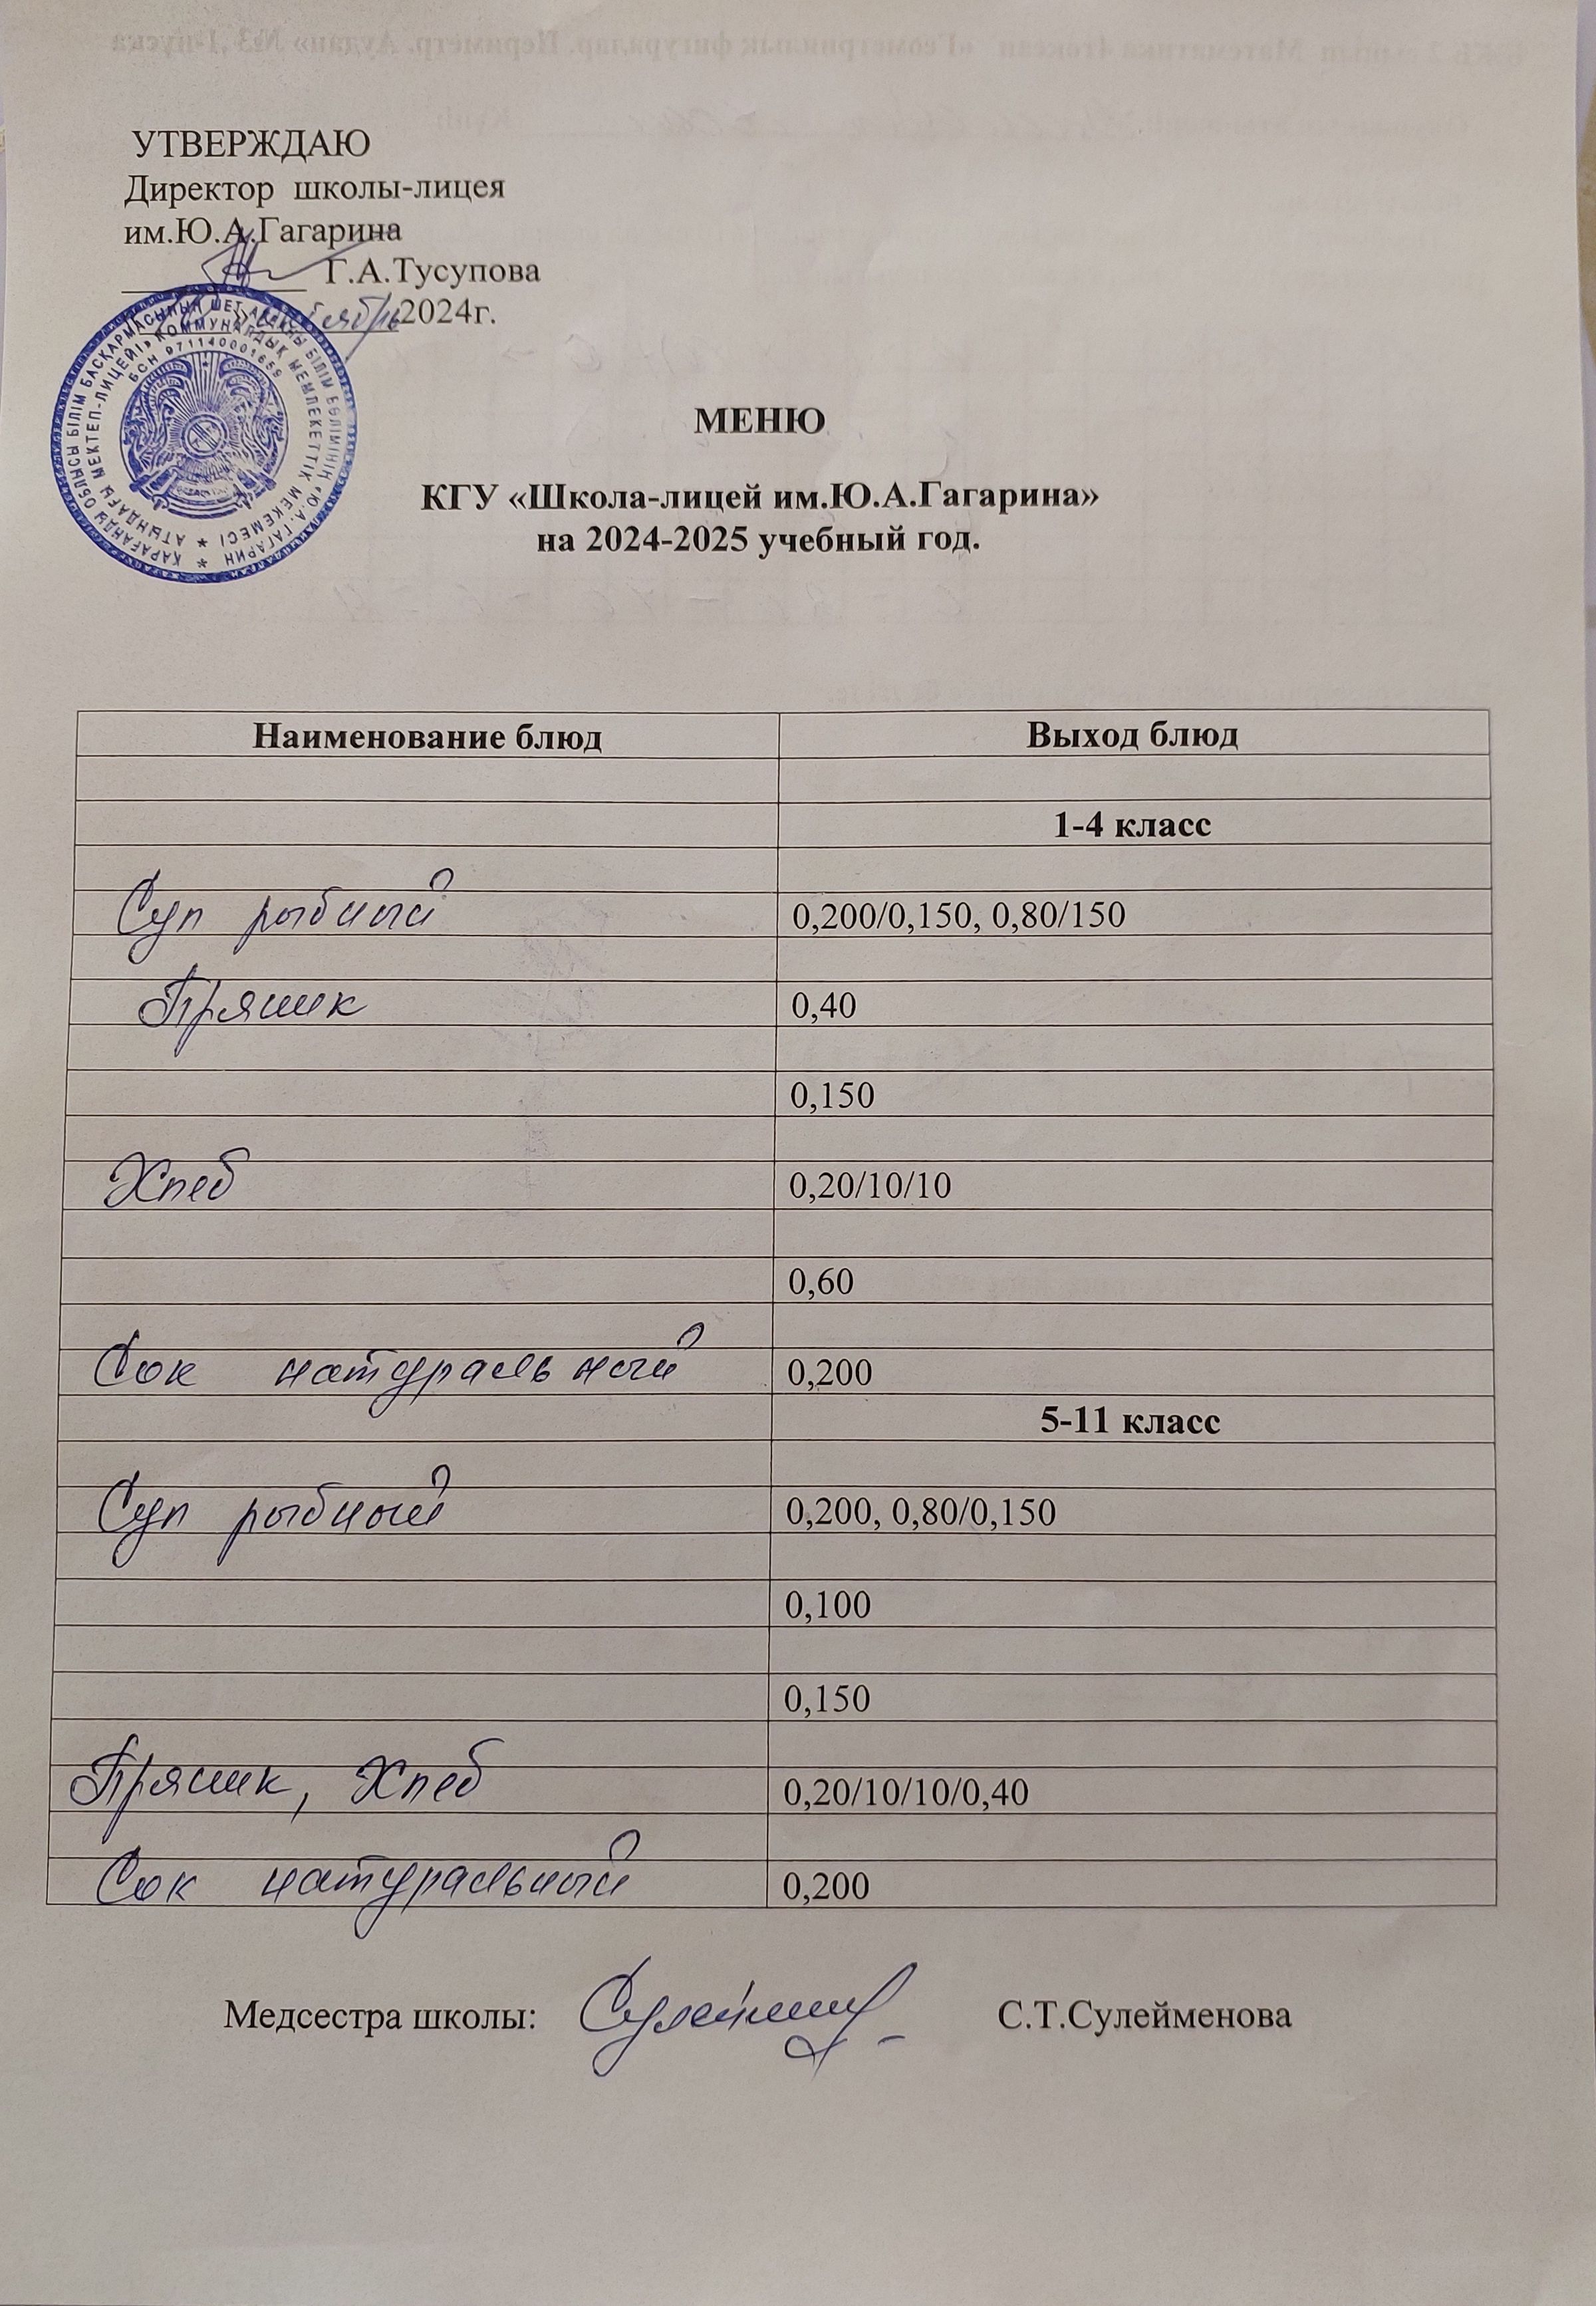 УТВЕРЖДАЮ
Директор школы-лицея
им.Ю.А.Гагарина
Г.А.Тусупова
2024г.
ҚАРАҒАНДЫ ОБЛЫСЫ БІЛІМ БАСҚАРМАСЫНЫҢ ШЕТ АУДАНЫ БІЛІМ БӨЛІМІНІҢ «Ю.А. ГАГАРИН
АТЫНДАҒЫ МЕКТЕП-ЛИЦЕЙІ» КОММУНАЛДЫҚ МЕМЛЕКЕТТІК МЕКЕМЕСІ
БСН 971140001659
МЕНЮ
КГУ «Школа-лицей им.Ю.А.Гагарина»
на 2024-2025 учебный год.
Наименование блюд Выход блюд
1-4 класс
Суп рыбный 0,200/0,150, 0,80/150
Пряник 0,40
0,150
Хлеб 0,20/10/10
0,60
Сок натуральный 0,200
5-11 класс
Суп рыбный 0,200, 0,80/0,150
0,100
0,150
Пряник, Хлеб 0,20/10/10/0,40
Сок натуральный 0,200
Медсестра школы: С.Т.Сулейменова